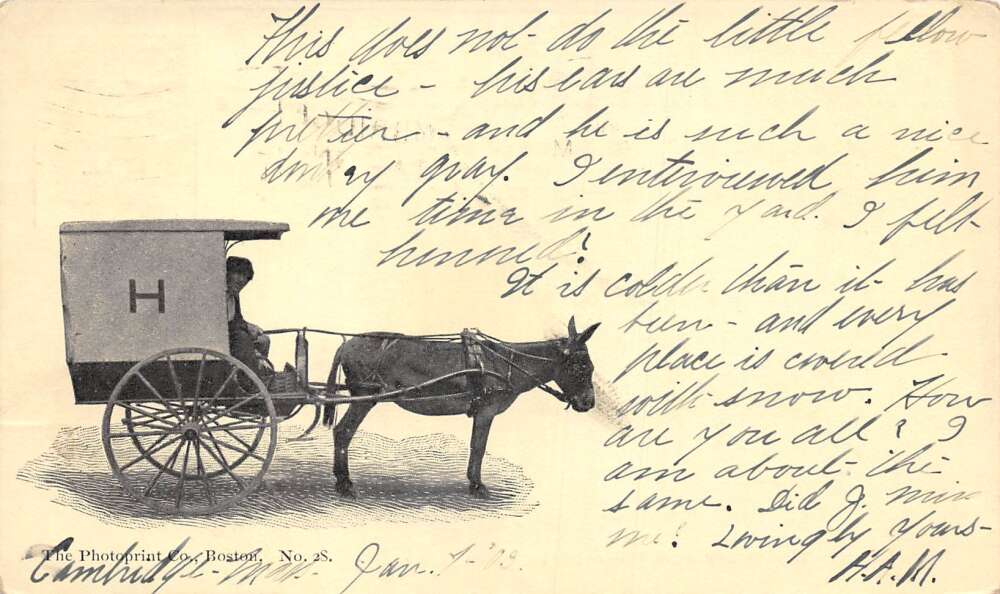 This does not do the little fellow
justice - his ears are much
prettier - and he is such a nice
gray. I enterviewed him
me time in the yard. I felt
It is colder than it has
been - and every
place is covered
with snow. How
are you all? I
am about the
same. Did J. miss
me! Lovingly Yours-
H.A.M.
H
The Photoprint Co., Boston. No. 28.
Cambridge- Mass. Jan. 7-'03.